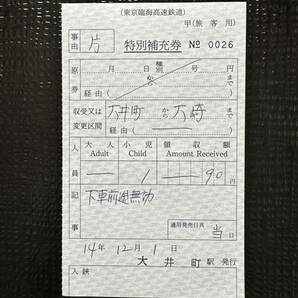 (東京臨海高速鉄道)
甲(旅客用)
事由 片 特別補充券 № 0026
原券 月 日 種別 から 号 まで
経由( )
収受又は変更区間 大井町 から 大崎 まで
経由( ― )
人員 大人 Adult 小児 Child 領収額 Amount Received
― 1 ―90円
記事 下車前途無効
通用発売日共 当日
14年 12月 1日
大井町 駅発行
入鋏